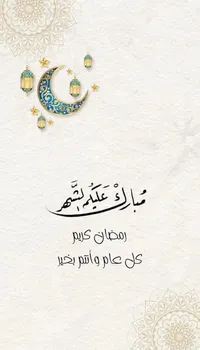 مُبَارَكْ عَلَيْكُم الشَّهر
رمضان كريم
كل عام وأنتم بخير